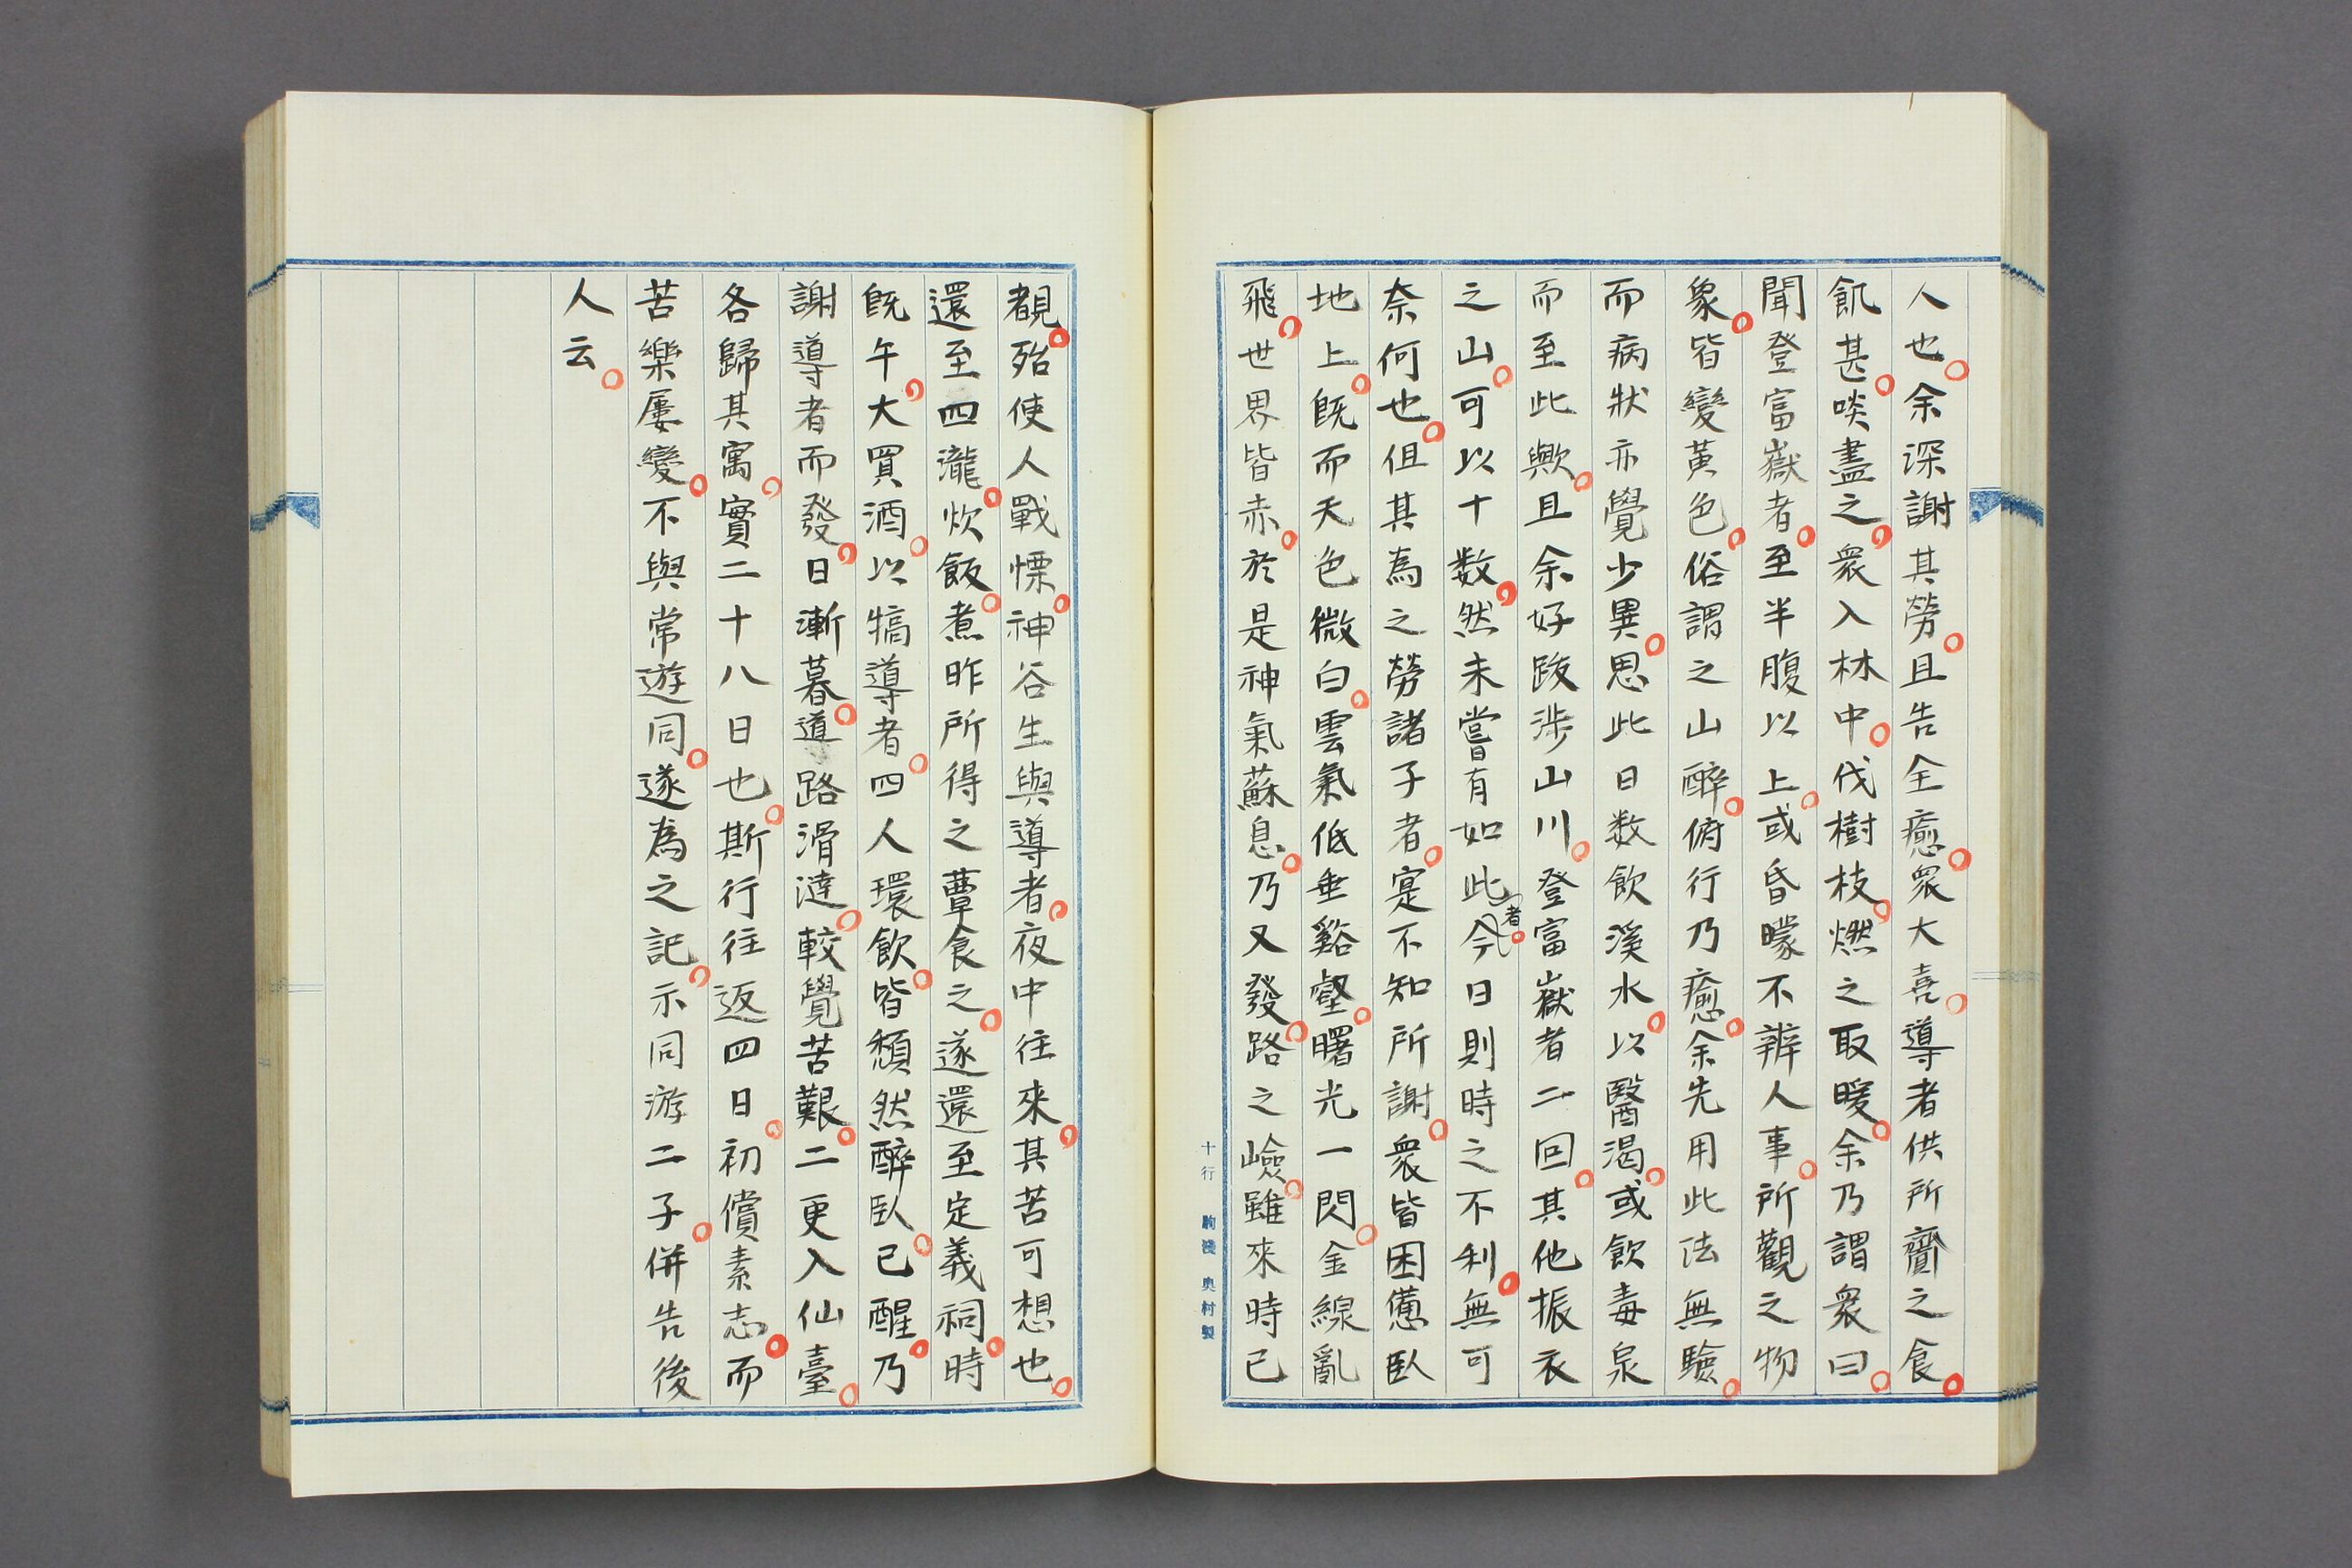 人也。余深謝其勞。且告全癒。衆大喜。導者供所齎之食。
飢甚。啖盡之。衆入林中。伐樹枝。燃之取暖。余乃謂衆曰。
聞登富嶽者。至半腹以上。或昏矇不辨人事。所觀之物
象。皆變黄色。俗謂之山醉。俯行乃癒。余先用此法無驗。
而病狀亦覺少異。思此日数飲溪水。以醫渴。或飲毒泉
而至此歟。且余好跋渉山川。登富嶽者二回。其他振衣
之山。可以十数。然未嘗有如此者。今日則時之不利。無可
奈何也。但其為之勞諸子者。寔不知所謝。衆皆困憊臥
地上。既而天色微白。雲氣低垂谿壑。曙光一閃。金線亂
飛。世界皆赤。於是神氣蘇息。乃又發。路之嶮。雖來時已
覩。殆使人戰慄。神谷生與導者。夜中往來。其苦可想也。
還至四瀧。炊飯。煮昨所得之蕈食之。遂還至定義祠。時
既午。大買酒。以犒導者。四人環飲。皆頽然醉臥。已醒。乃
謝導者而發。日漸暮。道路滑澾。較覺苦艱。二更入仙臺。
各歸其寓。實二十八日也。斯行往返四日。初償素志。而
苦樂屢變。不與常遊同。遂為之記。示同游二子。併告後
人云。
十行 奥村製